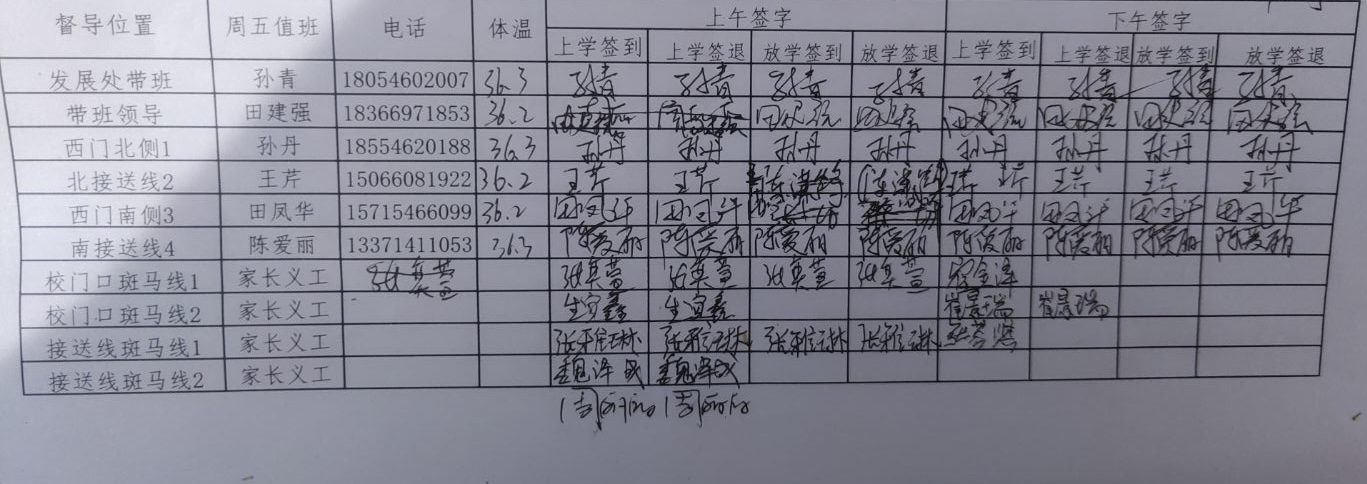 督导位置 周五值班 电话 体温 上午签字 下午签字
上学签到 上学签退 放学签到 放学签退 上学签到 上学签退 放学签到 放学签退
发展处带班 孙青 18054602007 36.3 孙青 孙青 孙青 孙青 孙青 孙青 孙青 孙青
带班领导 田建强 18366971853 36.2 田建强 田建强 田建强 田建强 田建强 田建强
西门北侧1 孙丹 18554620188 36.3 孙丹 孙丹 孙丹 孙丹 孙丹 孙丹 孙丹 孙丹
北接送线2 王芹 15066081922 36.2 王芹 王芹 王芹 王芹 王芹 王芹
西门南侧3 田凤华 15715466099 36.2 田凤华 田凤华 田凤华 田凤华 田凤华 田凤华
南接送线4 陈爱丽 13371411053 36.3 陈爱丽 陈爱丽 陈爱丽 陈爱丽 陈爱丽 陈爱丽 陈爱丽 陈爱丽
校门口斑马线1 家长义工
校门口斑马线2 家长义工 生宜鑫 生宜鑫 崔晟瑞 崔晟瑞
接送线斑马线1 家长义工
接送线斑马线2 家长义工 魏泽成 魏泽成